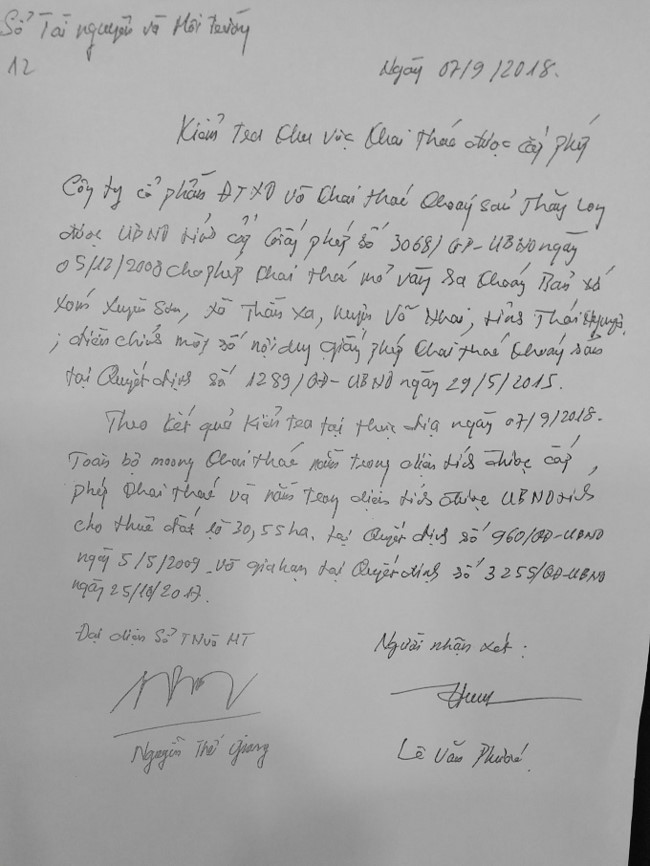 Sở Tài nguyên và Môi trường
12
Ngày 07/9/2018.
Kiểm tra khu vực khai thác được cấp phép
Công ty cổ phần ĐTXD và khai thác khoáng sản Thăng Long
được UBND tỉnh cấp Giấy phép số 3068/GP-UBND ngày
05/12/2008 cho phép khai thác mỏ vàng sa khoáng Bản
xóm Xuyên Sơn, xã Thần Xa, huyện Võ Nhai, tỉnh Thái Nguyên
; điều chỉnh một số nội dung giấy phép khai thác khoáng sản
tại Quyết định số 1289/QĐ-UBND ngày 29/5/2015.
Theo kết quả kiểm tra tại thực địa ngày 07/9/2018.
Toàn bộ moong khai thác nằm trong diện tích được cấp
phép khai thác và nằm trong diện tích được UBND tỉnh
cho thuê đất là 30,55ha. tại Quyết định số 960/QĐ-UBND
ngày 5/5/2009 và gia hạn tại Quyết định số 3255/QĐ-UBND
ngày 25/10/2017.
Đại diện Sở TN và MT
Người nhận xét:
Nguyễn Thế Giang
Lê Văn